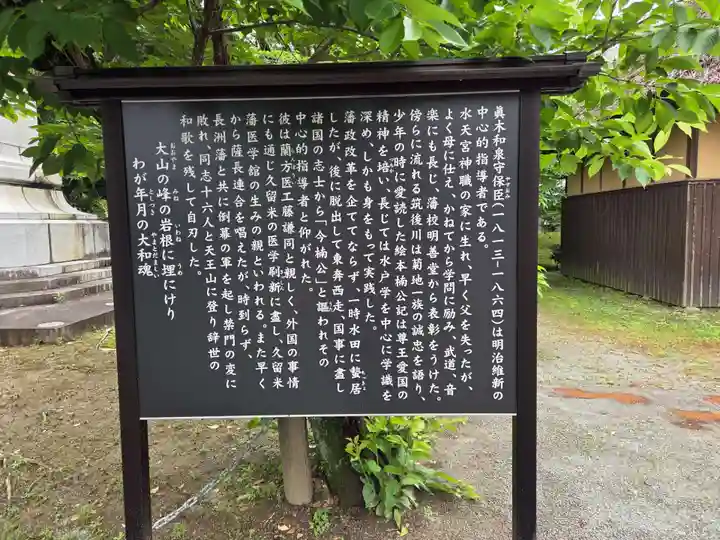 眞木和泉守保臣(一八一三―一八六四)は明治維新の
やすおみ
中心的指導者である。
水天宮神職の家に生れ、早く父を失ったが、
よく母に仕え、かねてから学問に励み、武道、音
楽にも長じ、藩校明善堂から表彰をうけた。
傍らに流れる筑後川は菊地一族の誠忠を語り、
少年の時に愛読した絵本楠公記は尊王愛国の
精神を培い、長じては水戸学を中心に学識を
深め、しかも身をもって実践した。
藩政改革を企ててならず、一時水田に蟄居
ちっきょ
したが、後に脱出して東奔西走、国事に盡し
諸国の志士から「今楠公」と謳われその
中心的指導者と仰がれた。
彼は蘭方医工藤謙同と親しく、外国の事情
にも通じ久留米の医学刷新に盡し、久留米
藩医学館の生みの親といわれる。また早く
から薩長連合を唱えたが、時到らず、
長洲藩と共に倒幕の軍を起し禁門の変に
敗れ、同志十六人と天王山に登り辞世の
和歌を残して自刃した。
大山の峰の岩根に埋にけり
おおやま みね いわね うめ
わが年月の大和魂
としつき やまとだましい